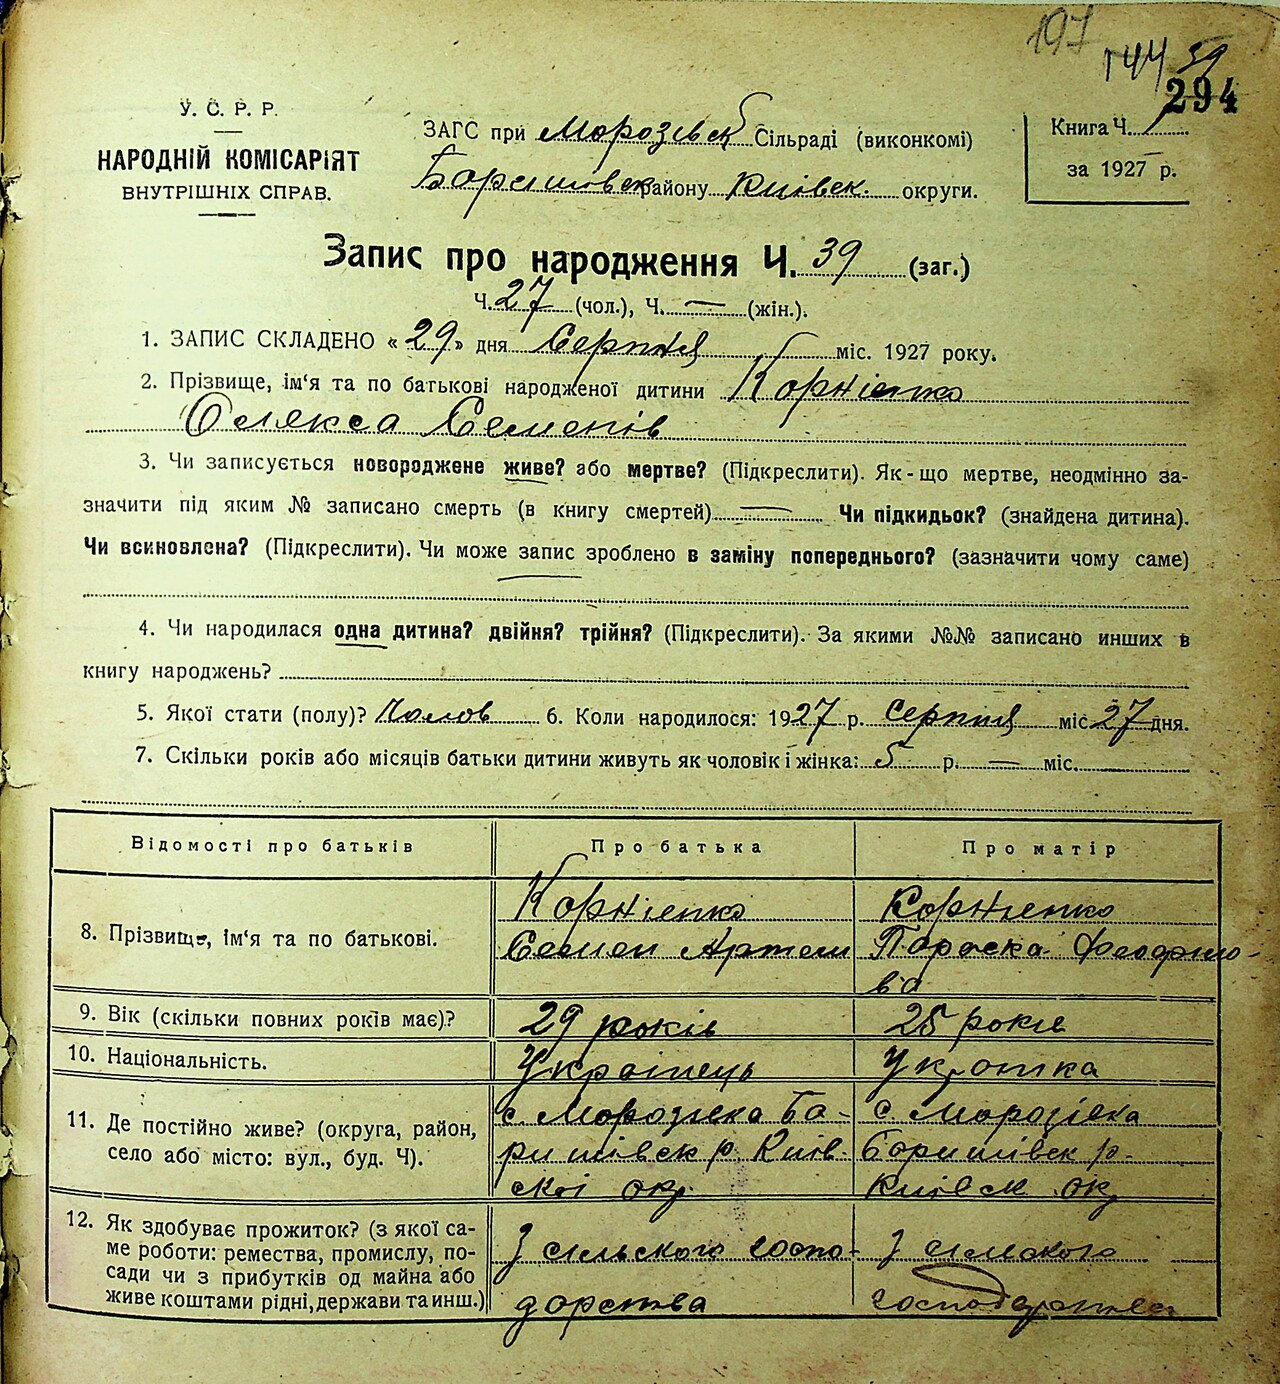 197
144 39
294
У. С. Р. Р.
НАРОДНІЙ КОМІСАРІЯТ
ВНУТРІШНІХ СПРАВ.
ЗАГС при Морозівськ Сільраді (виконкомі)
Баришовськ району Київськ. округи.
Книга Ч. 1
за 1927 р.
Запис про народження Ч. 39 (заг.)
Ч. 27 (чол.), Ч. — (жін.).
1. ЗАПИС СКЛАДЕНО « 29 » дня Серпня міс. 1927 року.
2. Прізвище, ім‘я та по батькові народженої дитини Корнієнко
Олякса Семенів
3. Чи записується новороджене живе? або мертве? (Підкреслити). Як-що мертве, неодмінно за-
значити під яким № записано смерть (в книгу смертей) — Чи підкидьок? (знайдена дитина).
Чи всиновлена? (Підкреслити). Чи може запис зроблено в заміну попереднього? (зазначити чому саме)
4. Чи народилася одна дитина? двійня? трійня? (Підкреслити). За якими №№ записано инших в
книгу народжень?
5. Якої стати (полу)? Чолов 6. Коли народилося: 1927 р. серпня міс. 27 дня.
7. Скільки років або місяців батьки дитини живуть як чоловік і жінка: 5 р. — міс.
Відомості про батьків Про батька Про матір
8. Прізвище, ім‘я та по батькові.
Корнієнко
Семен Артем
Корнієнко
Параска Феофило-
ва
9. Вік (скільки повних років має)? 29 років 25 років
10. Національність. Українець Укр.їнка
11. Де постійно живе? (округа, район,
село або місто: вул., буд. Ч).
с. Морозівка Ба-
ришівськ р. Київ-
ської окр.
с. Морозівка
Баришівськ р.
Київськ окр
12. Як здобуває прожиток? (з якої са-
ме роботи: ремества, промислу, по-
сади чи з прибутків од майна або
живе коштами рідні, держави та инш.)
З сільського госпо-
дарства
З сільского
господарства